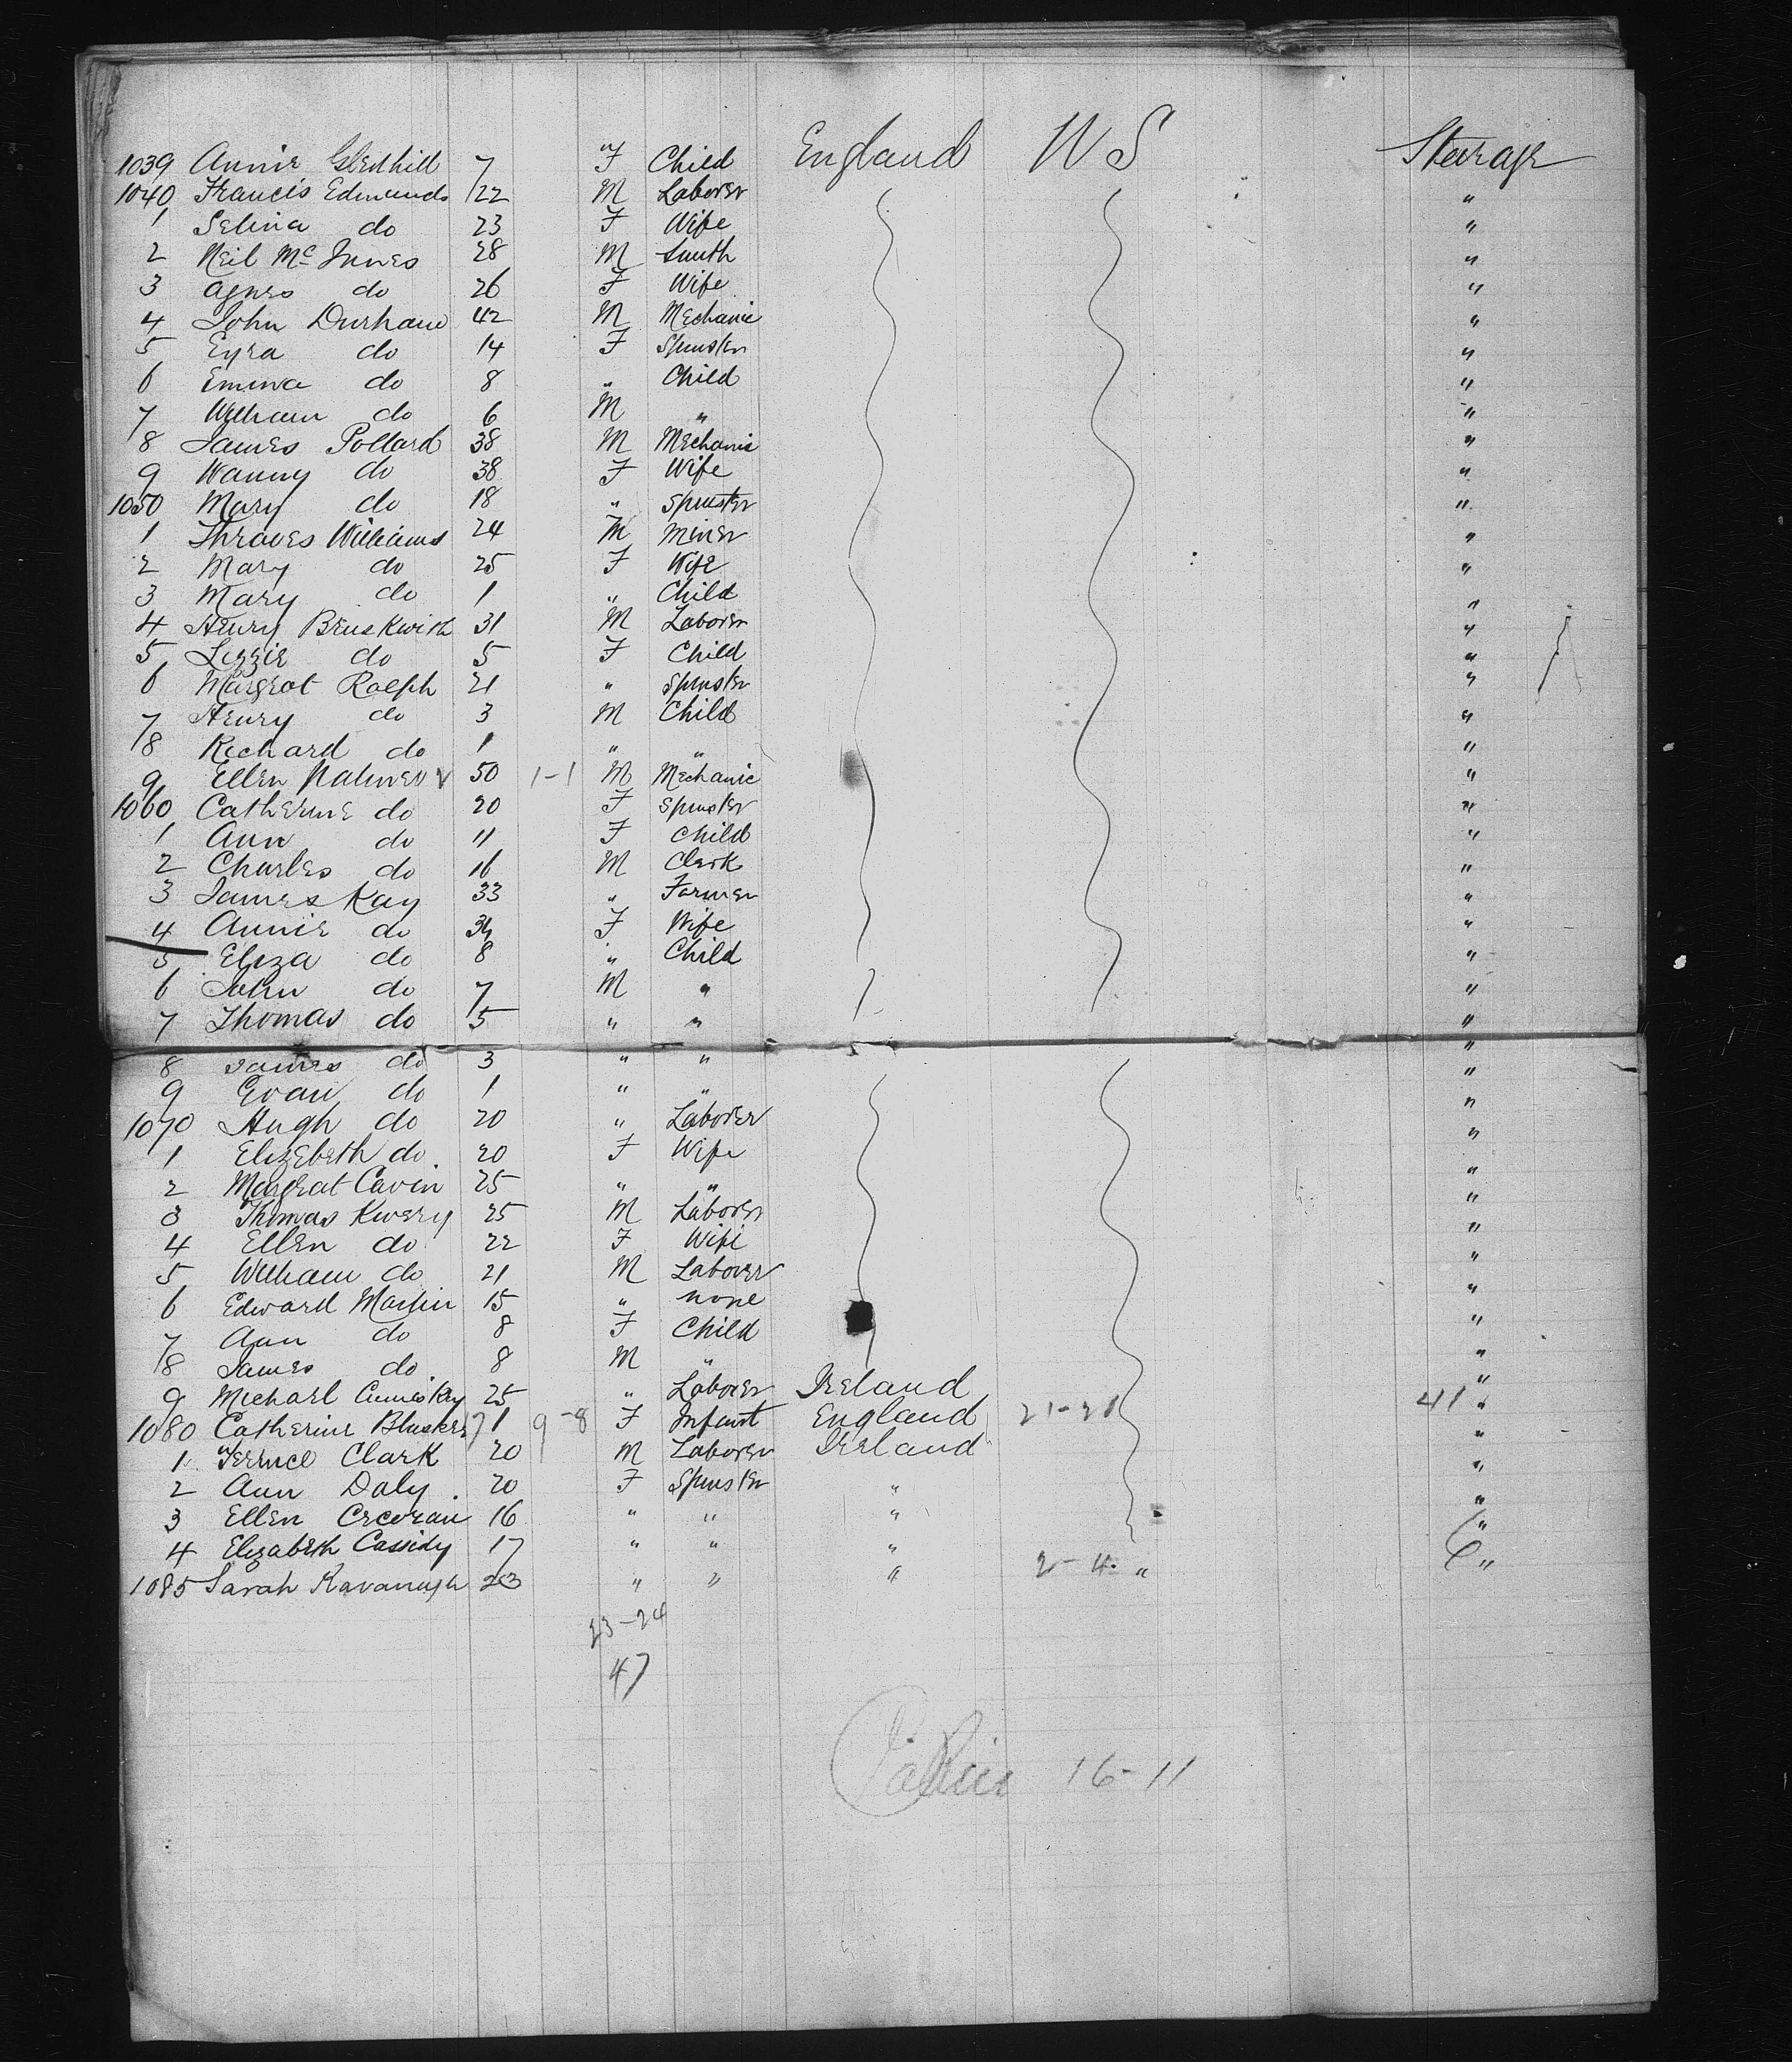 1039 Annie Gledhill 7 F Child England U S Steerage
1040 Francis Edmunds 22 M Laborer "
1 Selina do 23 F Wife "
2 Neil Mc Innes 28 M Smith "
3 Agnes do 26 F Wife "
4 John Durham 42 M Mechanic "
5 Eyra do 14 F Spinster "
6 Emma do 8 " Child "
7 William do 6 M " "
8 James Pollard 38 M Mechanic "
9 Wanny do 38 F Wife "
1050 Mary do 18 " Spinster "
1 Thraves Williams 24 M Miner "
2 Mary do 25 F Wife "
3 Mary do 1 " Child "
4 Henry Bruskwith 31 M Laborer "
5 Lizzie do 5 F Child "
6 Margrat Ralph 21 " Spinster "
7 Henry do 3 M Child "
8 Richard do 1 " " "
9 Ellen Palmer 50 1-1 M Mechanic "
1060 Catherine do 20 F Spinster "
1 Ann do 11 F Child "
2 Charles do 16 M Clerk "
3 James Kay 33 " Farmer "
4 Annie do 34 F Wife "
5 Eliza do 8 " Child "
6 John do 7 M " "
7 Thomas do 5 " " "
8 James do 3 " " "
9 Evan do 1 " " "
1070 Hugh do 20 " Laborer "
1 Elizebeth do 20 F Wife "
2 Margrat Cavin 25 " " "
3 Thomas Kwery 25 M Laborer "
4 Ellen do 22 F Wife "
5 William do 21 M Laborer "
6 Edward Martin 15 " none "
7 Ann do 8 F Child "
8 James do 8 M " "
9 Michael Cumiskey 25 " Laborer Ireland "
1080 Catherine 1 9-8 F Infant England 21-21 41 "
1 Terrnce Clark 20 M Laborer Ireland "
2 Ann Daly 20 F Spinster " "
3 Ellen Crcoran 16 " " " "
4 Elezabeth Cassidy 17 " " " "
1085 Sarah Kavanagh 23 " " " 2-4 " "
23-24
47
16-11